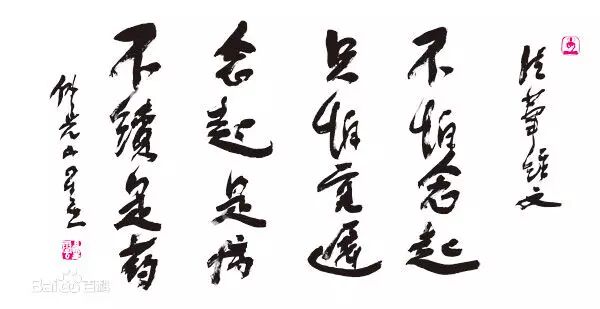 文
不怕念起
只怕覺遲
念起是病
不續是药
佛光山星雲
Baidu百科